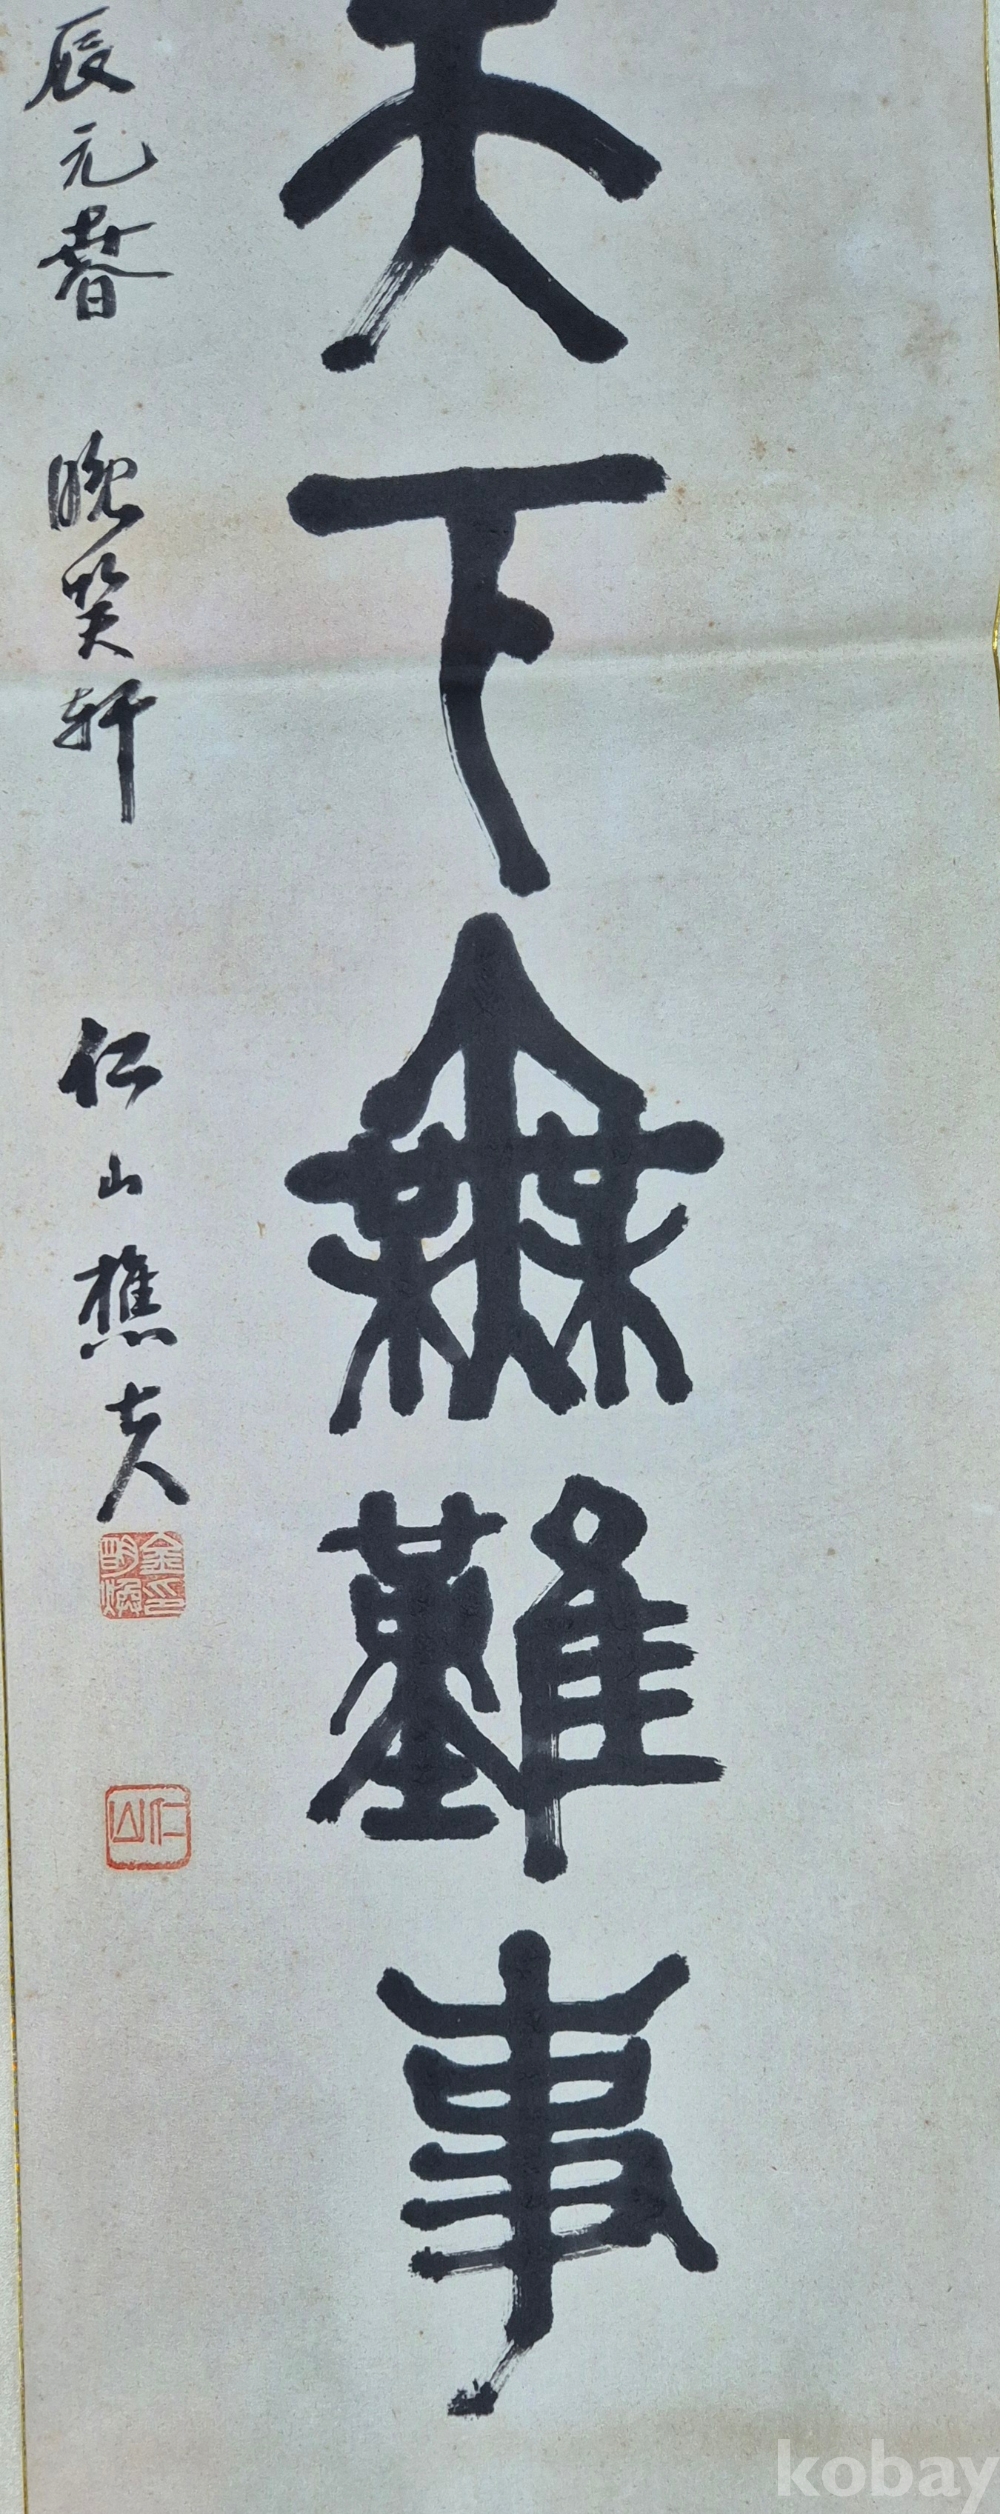 天下無難事
辰元春 晩笑軒 仁山樵夫
金印
明煥
仁山
kobay